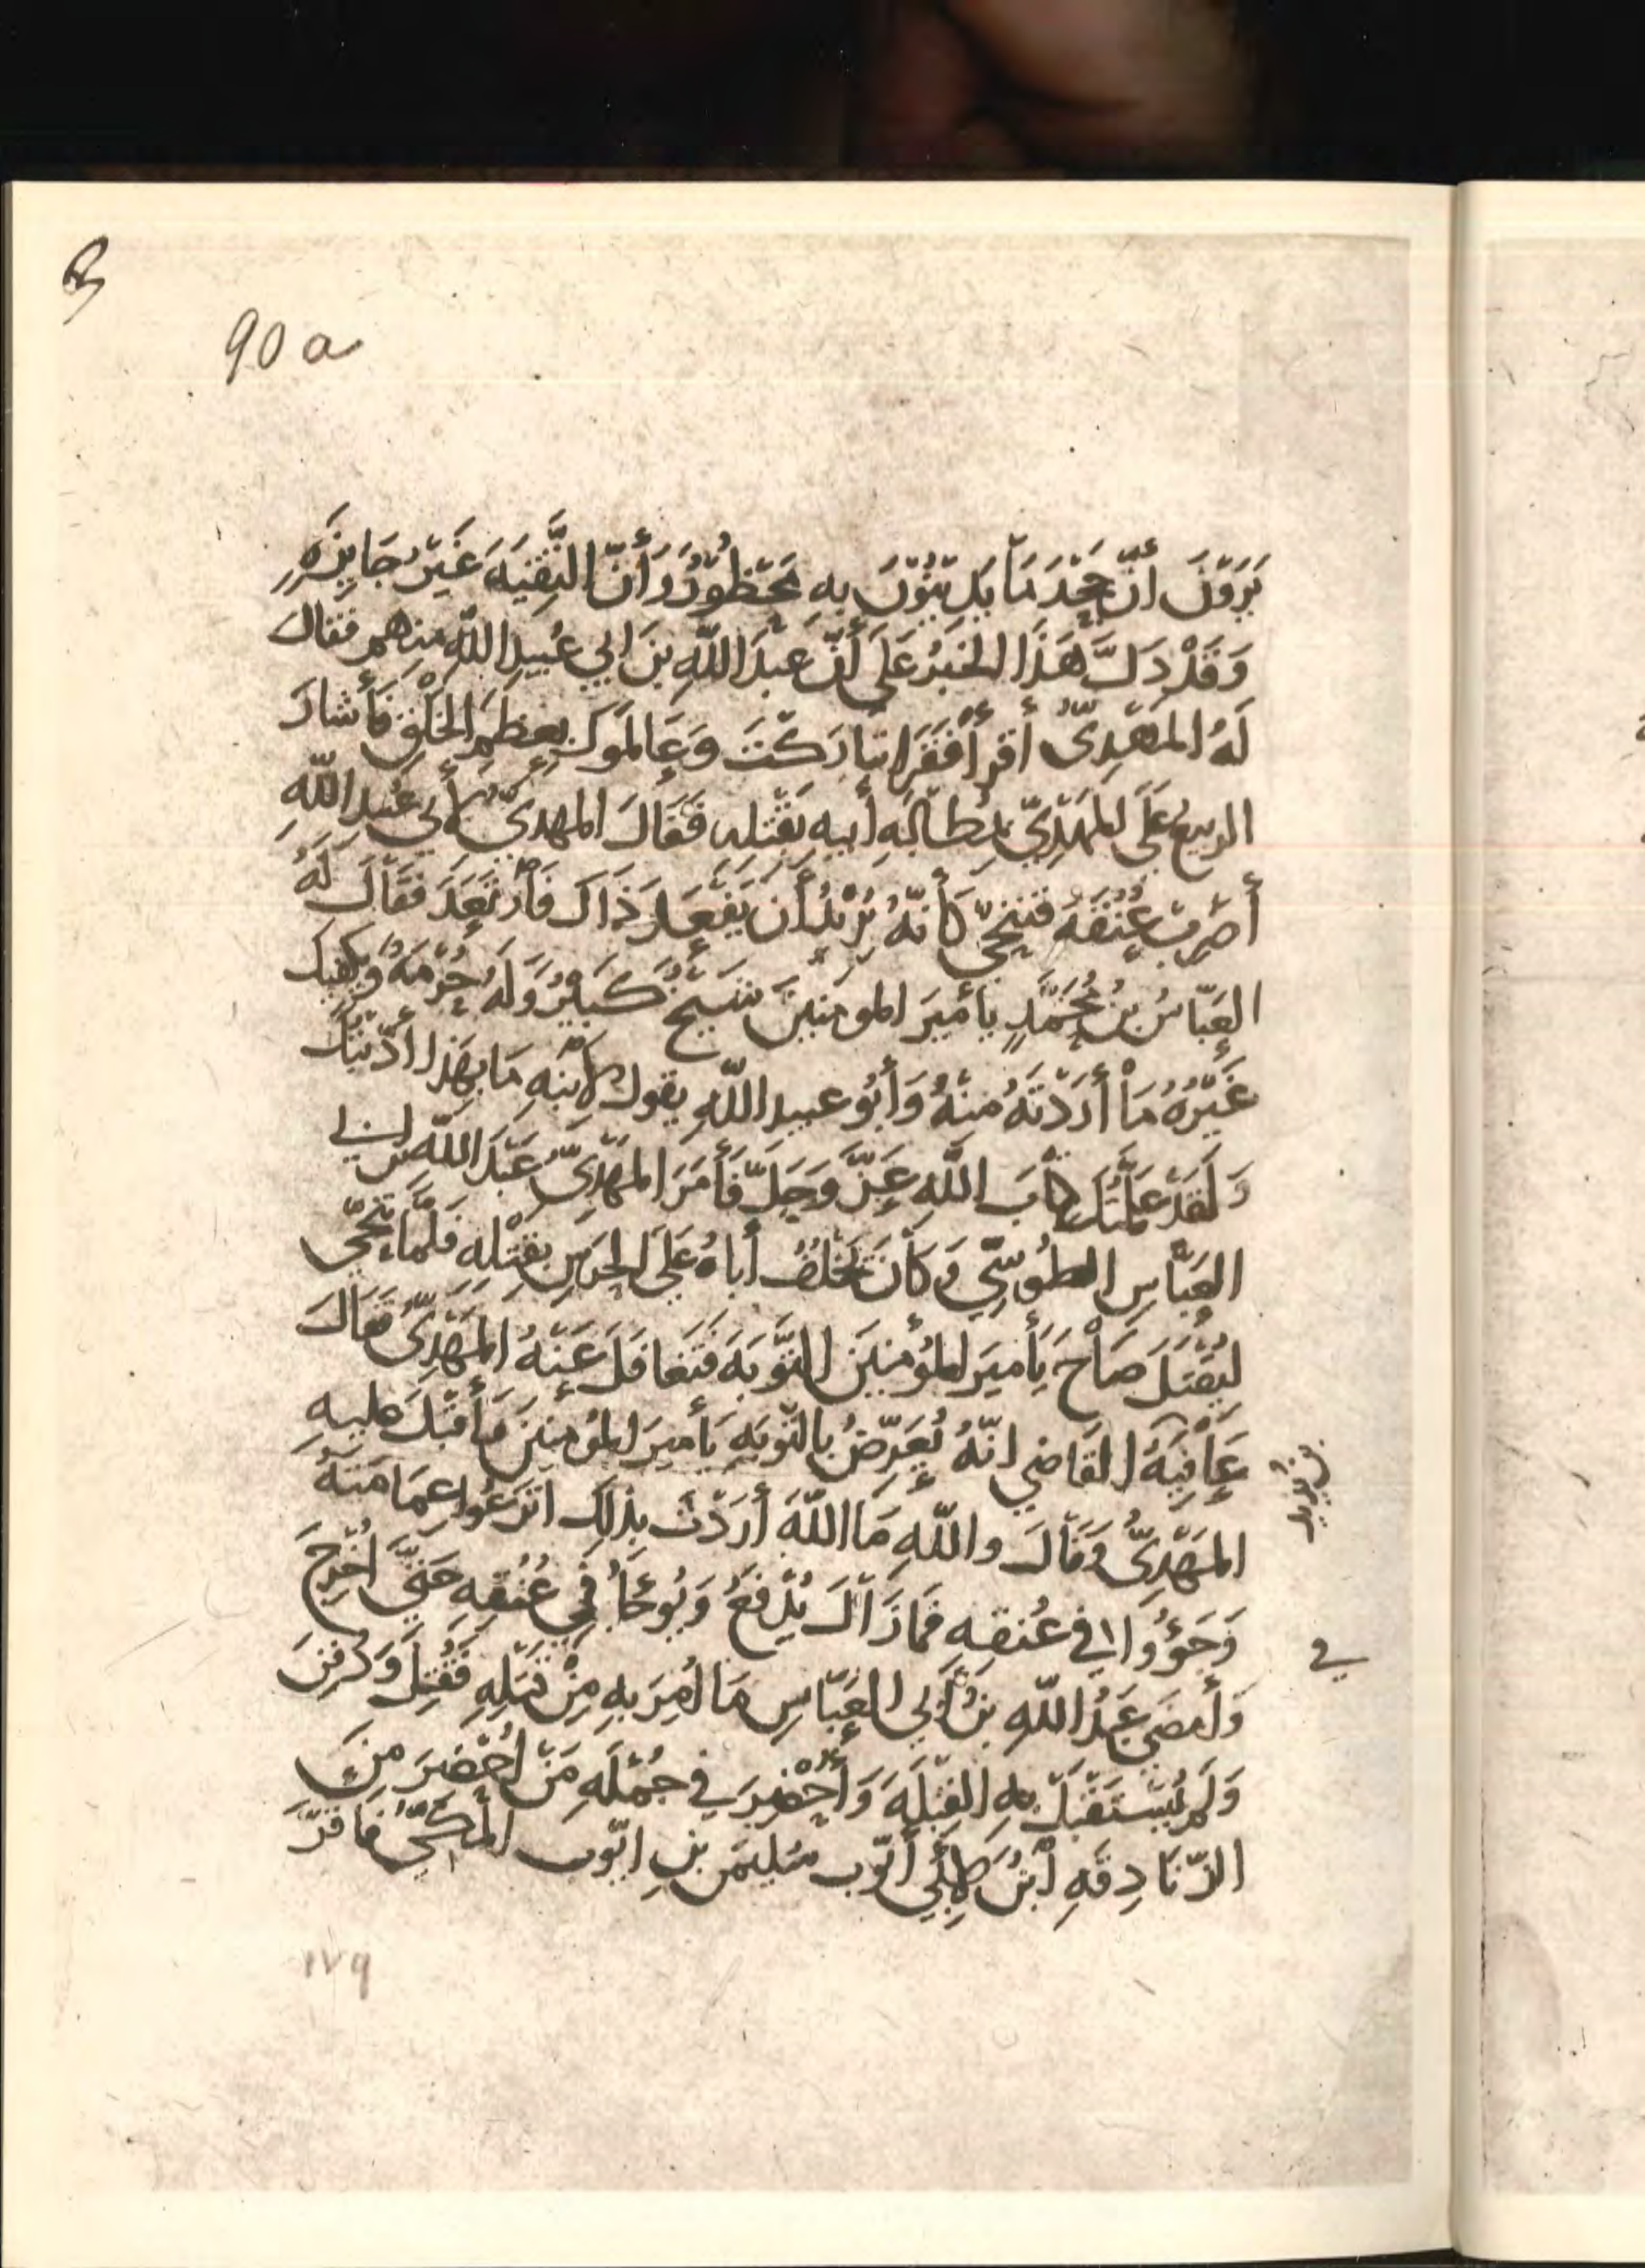 90 a
يَرَوْنَ أَنَّ جَحْدَ مَا يَدِينُوْنَ بِهِ مَحْظُوْرٌ وَأَنَّ التَّقِيَةَ غَيْرُ جَايِزَةٍ
وَقَدْ دَلَّ هَذَا الخَبَرُ عَلَى أَنَّ عَبْدَ اللّهِ بْنَ ابِي عُبَيدِ اللّهِ مِنهم فقال
لَهُ المَهْدِيُّ أقرأ فَقَرَا تبَارَكْتَ وَعَالَمُوكَ بِعِظَمِ الخَلْقِ فَأَشَارَ
الربيعُ عَلَى المَهْدِيِّ بِمُطَالَبَةِ أَبِيهِ بِقَتْلِهِ فَقَالَ المهديُّ لأَبي عُبَيدِ اللّهِ
أضرِب عُنُقَهُ فتنحّى كَأَنَّهُ يُرِيْدُ أَن يَفْعَلَ ذَاكَ فَأُرْتِعَدَ فَقَالَ لَهُ
العَبّاسُ بنُ مُحَمَّدٍ يا أَمِيرَ المومنِينَ شَيْخٌ كَبيْرٌ وَلَهُ حُرْمَةٌ وَيكفِيكَ
غَيْرُهُ مَا أَرَدْتَهُ مِنْهُ وَأَبُو عبيد اللّهِ يقول لابنِهِ مَا بِهَذا أدّبتُكَ
وَلَقَدْ عَلَّمْتُكَ كِتابَ اللّهِ عَزَّ وَجَلَّ فَأَمَرَ المَهْدِيُّ عَبْدَ اللّه بن ابي
العَبَّاسِ الطُوسِيّ وَكَانَ يَخْلُفُ أَباهُ عَلَى الحَرَسِ بِقَتْلِهِ فَلَمَّا نُحِّيَ
لِيُقْتَلَ صَاحَ يَا أَمِيرَ المُؤْمِنِينَ التَّوبَةَ فَتَغَافَلَ عَنْهُ المَهْدِيُّ فقَالَ
عَافِيَةُ القَاضِي انّهُ يُعَرِّضُ بالتَّوبَةِ يَا أميرَ المُؤمِنِينَ فَأَقْبَلَ عليهِ
بن يزيد
المَهْدِيُّ وَقَالَ واللّهِ مَا اللّهَ أَرَدْتَ بِذلِكَ انزعُوا عِمَامَتَهُ
وَجَؤُوا في عُنقِهِ فَمَا زَالَ يُدْفَعُ وَيُوجَأُ فِي عُنُقِهِ حَتَّى اُخْرِجَ
في
وَأَمضَى عَبْدُ اللّهِ بنُ أَبِي العَبّاسِ مَا اُمِرَ بِهِ مِنْ قَتْلِهِ فَقُتِلَ وَدُفِنَ
وَلَم يُسْتَقْبَلْ بِهِ القِبْلَةَ وَأُحْضِرَ فِي جُمْلَةِ مَنْ اُحْضِرَ مِنَ
الزّنَادِقَةِ ابْنٌ لأَبِي أَيّوب سُليمن بنِ ايّوب المَكّيِّ فَاقَرَّ
١٧٩